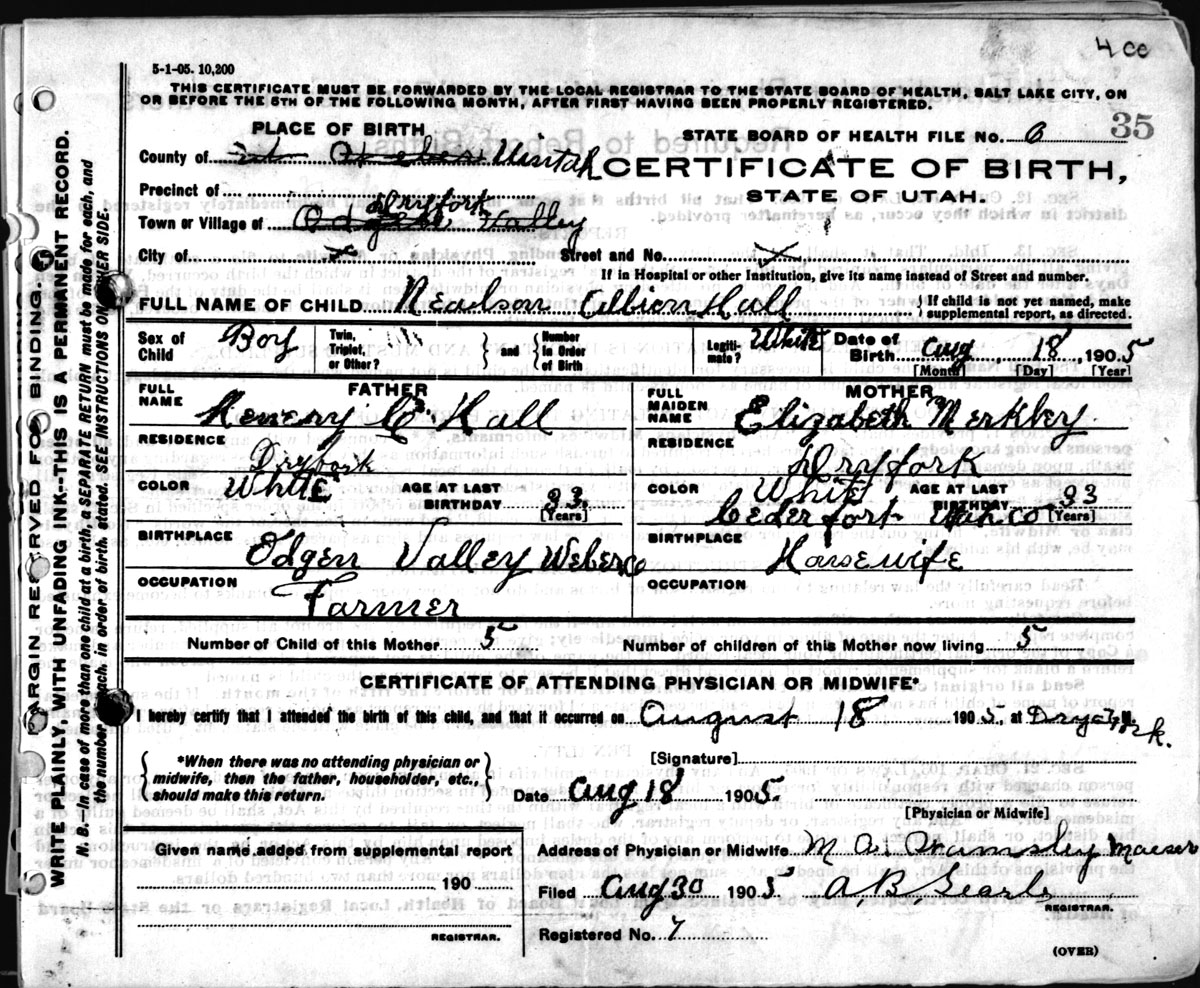 4 00
5-1-05. 10,200
THIS CERTIFICATE MUST BE FORWARDED BY THE LOCAL REGISTRAR TO THE STATE BOARD OF HEALTH, SALT LAKE CITY, ON
OR BEFORE THE 5TH OF THE FOLLOWING MONTH, AFTER FIRST HAVING BEEN PROPERLY REGISTERED.
PLACE OF BIRTH
STATE BOARD OF HEALTH FILE No. 6 35
County of Uintah
CERTIFICATE OF BIRTH,
STATE OF UTAH.
Precinct of
Dryfork
Town or Village of Valley
City of x Street and No. x
If in Hospital or other Institution, give its name instead of Street and number.
FULL NAME OF CHILD Nealson Albion Hall { If child is not yet named, make supplemental report, as directed.
Sex of Child Boy Twin, Triplet, or Other? } and { Number in Order of Birth Legitimate? White Date of Birth Aug 18, 1905
[Month] [Day] [Year]
FATHER MOTHER
FULL NAME Henery C Hall FULL MAIDEN NAME Elizabeth Merkley
RESIDENCE Dryfork RESIDENCE Dryfork
COLOR White AGE AT LAST BIRTHDAY 33 [Years] COLOR White AGE AT LAST BIRTHDAY 33 [Years]
Ceder fort Utah co
BIRTHPLACE Odgen Valley Weber Co BIRTHPLACE Housewife
OCCUPATION Farmer OCCUPATION
Number of Child of this Mother 5 Number of children of this Mother now living 5
CERTIFICATE OF ATTENDING PHYSICIAN OR MIDWIFE*
I hereby certify that I attended the birth of this child, and that it occurred on August 18 1905, at Dryfork. M.
*When there was no attending physician or midwife, then the father, householder, etc., should make this return.
[Signature]
Date Aug 18 1905.
[Physician or Midwife]
Given name added from supplemental report
Address of Physician or Midwife M A Wamsley Maeser
190
Filed Aug 30 1905 A. B. Searle
REGISTRAR.
REGISTRAR.
Registered No. 7
(OVER)
MARGIN RESERVED FOR BINDING.
WRITE PLAINLY, WITH UNFADING INK--THIS IS A PERMANENT RECORD.
N. B. In case of more than one child at a birth, a SEPARATE RETURN must be made for each, and
the number of each, in order of birth, stated. SEE INSTRUCTIONS ON OTHER SIDE.